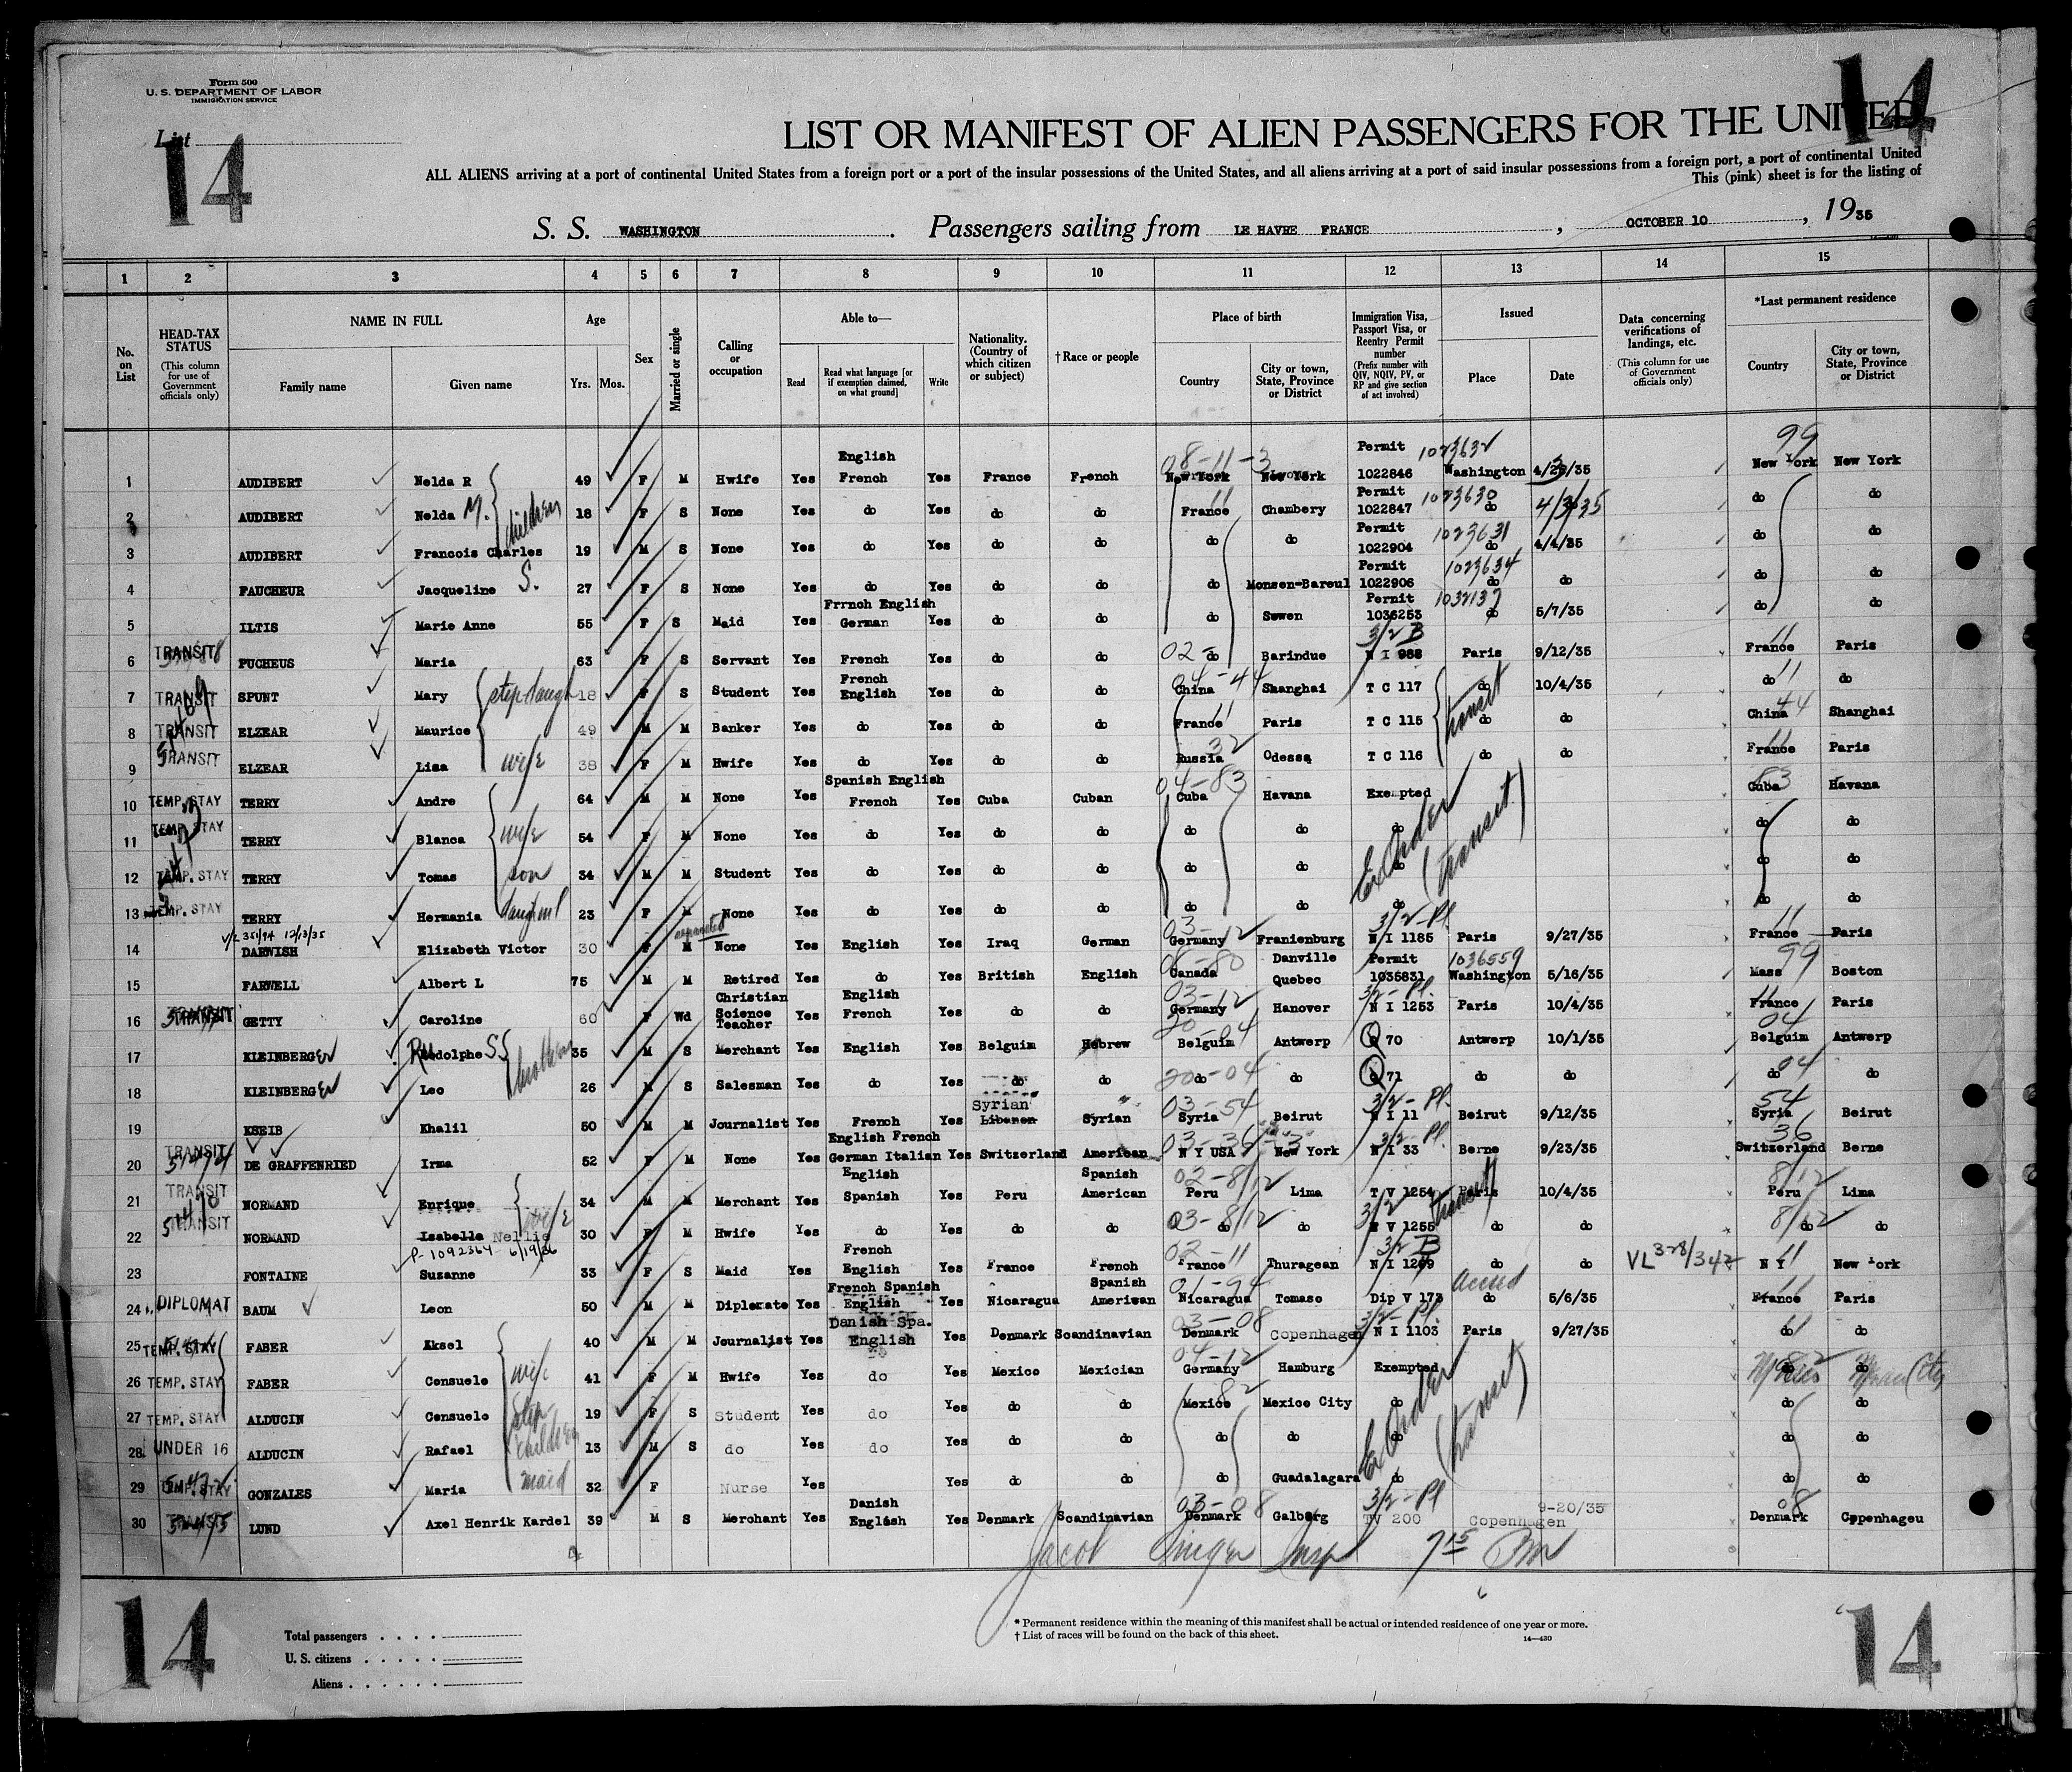 Form 500
U. S. DEPARTMENT OF LABOR
IMMIGRATION SERVICE
List
14
14
LIST OR MANIFEST OF ALIEN PASSENGERS FOR THE UNITED
ALL ALIENS arriving at a port of continental United States from a foreign port or a port of the insular possessions of the United States, and all aliens arriving at a port of said insular possessions from a foreign port, a port of continental United
This (pink) sheet is for the listing of
S. S. WASHINGTON. Passengers sailing from LE HAVRE FRANCE, OCTOBER 10, 1935
1 2 3 4 5 6 7 8 9 10 11 12 13 14 15
No. on List
HEAD-TAX STATUS (This column for use of Government officials only)
NAME IN FULL
Family name
Given name
Age
Yrs. Mos.
Sex
Married or single
Calling or occupation
Able to—
Read
Read what language [or if exemption claimed, on what ground]
Write
Nationality. (Country of which citizen or subject)
†Race or people
Place of birth
Country
City or town, State, Province or District
Immigration Visa, Passport Visa, or Reentry Permit number (Prefix number with QIV, NQIV, PV, or RP and give section of act involved)
Issued
Place
Date
Data concerning verifications of landings, etc. (This column for use of Government officials only)
*Last permanent residence
Country
City or town, State, Province or District
1 AUDIBERT Nelda R 49 F M Hwife Yes English French Yes France French 08-11-3 New York New York Permit 1022846 1023632 Washington 4/23/35 99 New York New York
2 AUDIBERT Nelda M. children 18 F S None Yes do Yes do do France 11 Chambery Permit 1022847 1023630 do 4/3/35 do do
3 AUDIBERT Francois Charles 19 M S None Yes do Yes do do do do Permit 1022904 1023631 do 4/4/35 do do
4 FAUCHEUR Jacqueline S. 27 F S None Yes do Yes do do do Monsen-Bareul Permit 1022906 1023634 do do do do
5 ILTIS Marie Anne 55 F S Maid Yes Frrnch English German Yes do do do Sewen Permit 1036253 1032137 do 5/7/35 do do
6 TRANSIT PUCHEUS Maria 63 F S Servant Yes French Yes do do 02- do Barindue 3/2 B N I 988 Paris 9/12/35 France 11 Paris
7 TRANSIT SPUNT Mary stepdaugh 18 F S Student Yes French English Yes do do 04-44 China Shanghai T C 117 transit do 10/4/35 do 11 do
8 TRANSIT ELZEAR Maurice 49 M M Banker Yes do Yes do do France 11 Paris T C 115 do do China 44 Shanghai
9 TRANSIT ELZEAR Lisa wife 38 F M Hwife Yes do Yes do do Russia 32 Odessa T C 116 do do France 11 Paris
10 TEMP. STAY TERRY Andre 64 M M None Yes Spanish English French Yes Cuba Cuban 04-83 Cuba Havana Exempted Cuba 83 Havana
11 TEMP. STAY TERRY Blanca wife 54 F M None Yes do Yes do do do do do do do
12 TEMP. STAY TERRY Tomas son 34 M M Student Yes do Yes do do do do do Ex Order (transit) do do
13 TEMP. STAY TERRY Hermania 23 F M None Yes do Yes do do do do do do do
V/L 35194 12/13/35
14 DARWISH Elizabeth Victor 30 F M separated None Yes English Yes Iraq German 03-12 Germany Franienburg 3/2-Pl. N I 1185 Paris 9/27/35 France 11 Paris
15 FARWELL Albert L 75 M M Retired Yes do Yes British English 08-80 Canada Danville Quebec Permit 1036831 1036559 Washington 5/16/35 Mass 99 Boston
16 TRANSIT GETTY Caroline 60 F Wd Christian Science Teacher Yes English French Yes do do 03-12 Germany Hanover 3/2-Pl. N I 1253 Paris 10/4/35 France 11 Paris
17 KLEINBERGER Rudolphe S brothers 35 M S Merchant Yes English Yes Belguim Hebrew 20-04 Belguim Antwerp Q 70 Antwerp 10/1/35 Belguim 04 Antwerp
18 KLEINBERGER Leo 26 M S Salesman Yes do Yes do do 20-04 do do Q 71 do do do 04 do
19 KSEIB Khalil 50 M M Journalist Yes French Yes Syrian Libanon Syrian 03-54 Syria Beirut 3/2-Pl. N I 11 Beirut 9/12/35 Syria 54 Beirut
20 TRANSIT 51474 DE GRAFFENRIED Irma 52 F M None Yes English French German Italian Yes Switzerland American 03-36-3 N Y USA New York 3/2-Pl. N I 33 Berne 9/23/35 Switzerland 36 Berne
21 TRANSIT NORMAND Enrique 34 M M Merchant Yes English Spanish Yes Peru Spanish American 02-8/12 Peru Lima T V 1254 transit Paris 10/4/35 Peru 8/12 Lima
22 TRANSIT NORMAND Isabella Nellie wife 30 F M Hwife Yes do Yes do do 03-8/12 do do 3/2 N V 1255 do do do 8/12 do
P-1092364 6/19/36
23 FONTAINE Suzanne 33 F S Maid Yes French English Yes France French 02-11 France Thuragean 3/2 B N I 1269 do do VL 328/342 N Y 11 New York
24 DIPLOMAT BAUM Leon 50 M M Diplomate Yes French Spanish English Yes Nicaragua Spanish American 01-94 Nicaragua Tomaso Dip V 173 accred do 5/6/35 France 11 Paris
25 TEMP. STAY FABER Aksel 40 M M Journalist Yes Danish Spa. English Yes Denmark Scandinavian 03-08 Denmark Copenhagen 3/2-Pl. N I 1103 Paris 9/27/35 do 61 do
26 TEMP. STAY FABER Consuelo wife 41 F M Hwife Yes do Yes Mexico Mexician 04-12 Germany Hamburg Exempted do 82 do
27 TEMP. STAY ALDUCIN Consuelo step children 19 F S Student Yes do Yes do do Mexico 82 Mexico City do do do
28 UNDER 16 ALDUCIN Rafael 13 M S do Yes do Yes do do do do do Ex Order (transit) do do
29 TEMP. STAY GONZALES Maria maid 32 F Nurse Yes Yes do do do Guadalagara do do do
30 TRANSIT LUND Axel Henrik Kardel 39 M S Merchant Yes Danish English Yes Denmark Scandinavian 03-08 Denmark Galberg 3/2-Pl TV 200 Copenhagen 9-20/35 Denmark 08 Cppenhageu
Jacob Singer Insp 7 15 PM
14
Total passengers . . . .
U. S. citizens . . . . .
Aliens . . . . . .
* Permanent residence within the meaning of this manifest shall be actual or intended residence of one year or more.
† List of races will be found on the back of this sheet.
14—430
14